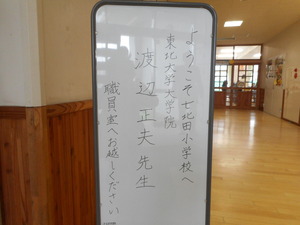 ようこそ七北田小学校へ
東北大学大学院
渡辺正夫先生
職員室へお越しください